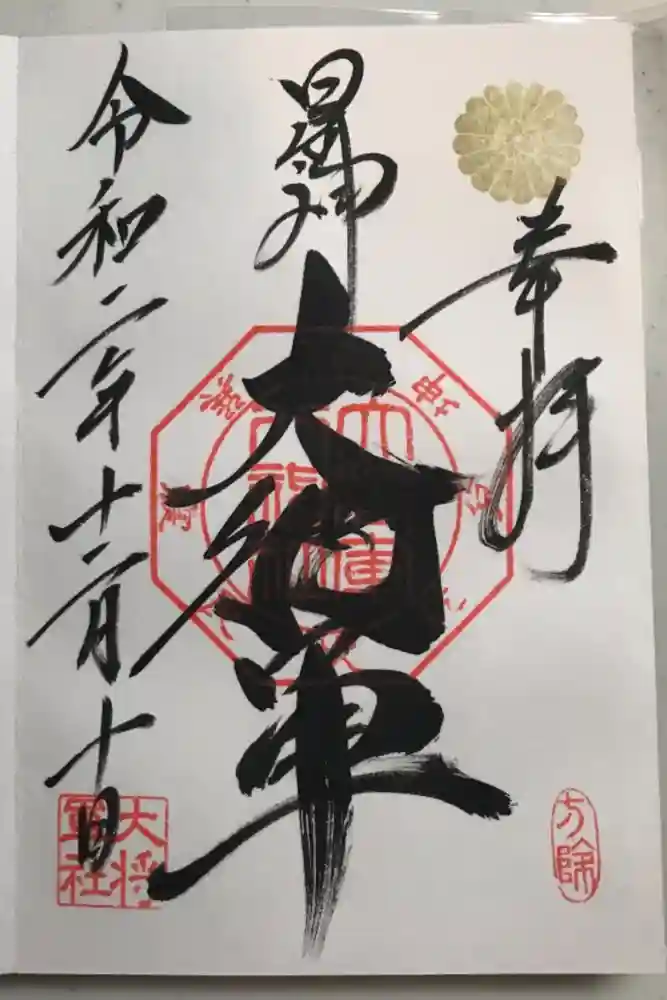 奉拝
星神
大将軍
令和二年十二月十日
方除
大将
軍社
坤